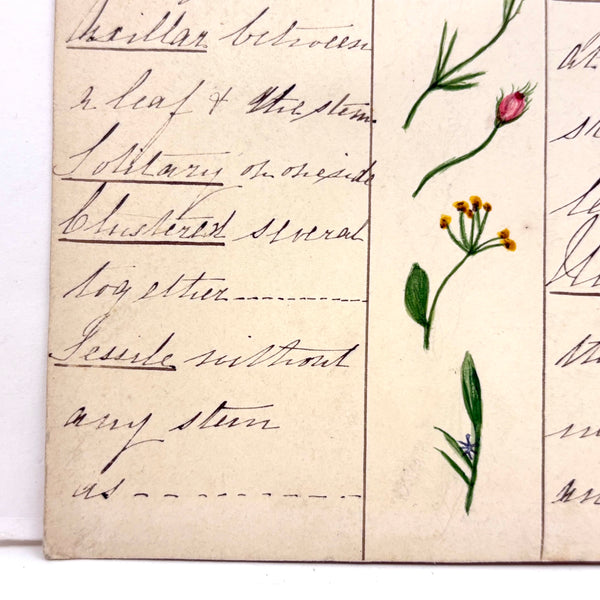 Axillar between
a leaf & the stem.
Solitary on one side
Clustered several
together----------
Sessile without
any stem
as ----------
at
th
an